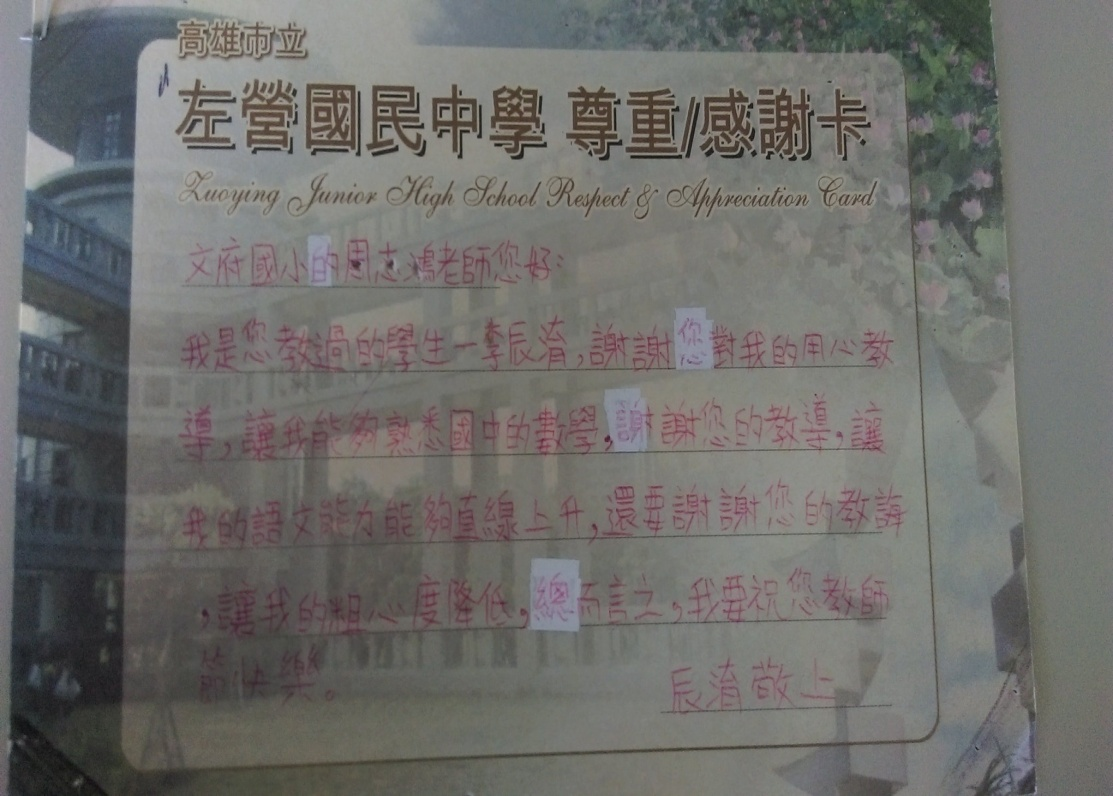 高雄市立
左營國民中學 尊重/感謝卡
Zuoying Junior High School Respect & Appreciation Card
文府國小的周志鴻老師您好:
我是您教過的學生一李辰淯,謝謝您對我的用心教
導,讓我能夠熟悉國中的數學,謝謝您的教導,讓
我的語文能力能夠直線上升,還要謝謝您的教誨
,讓我的粗心度降低,總而言之,我要祝您教師
節快樂。
辰淯敬上